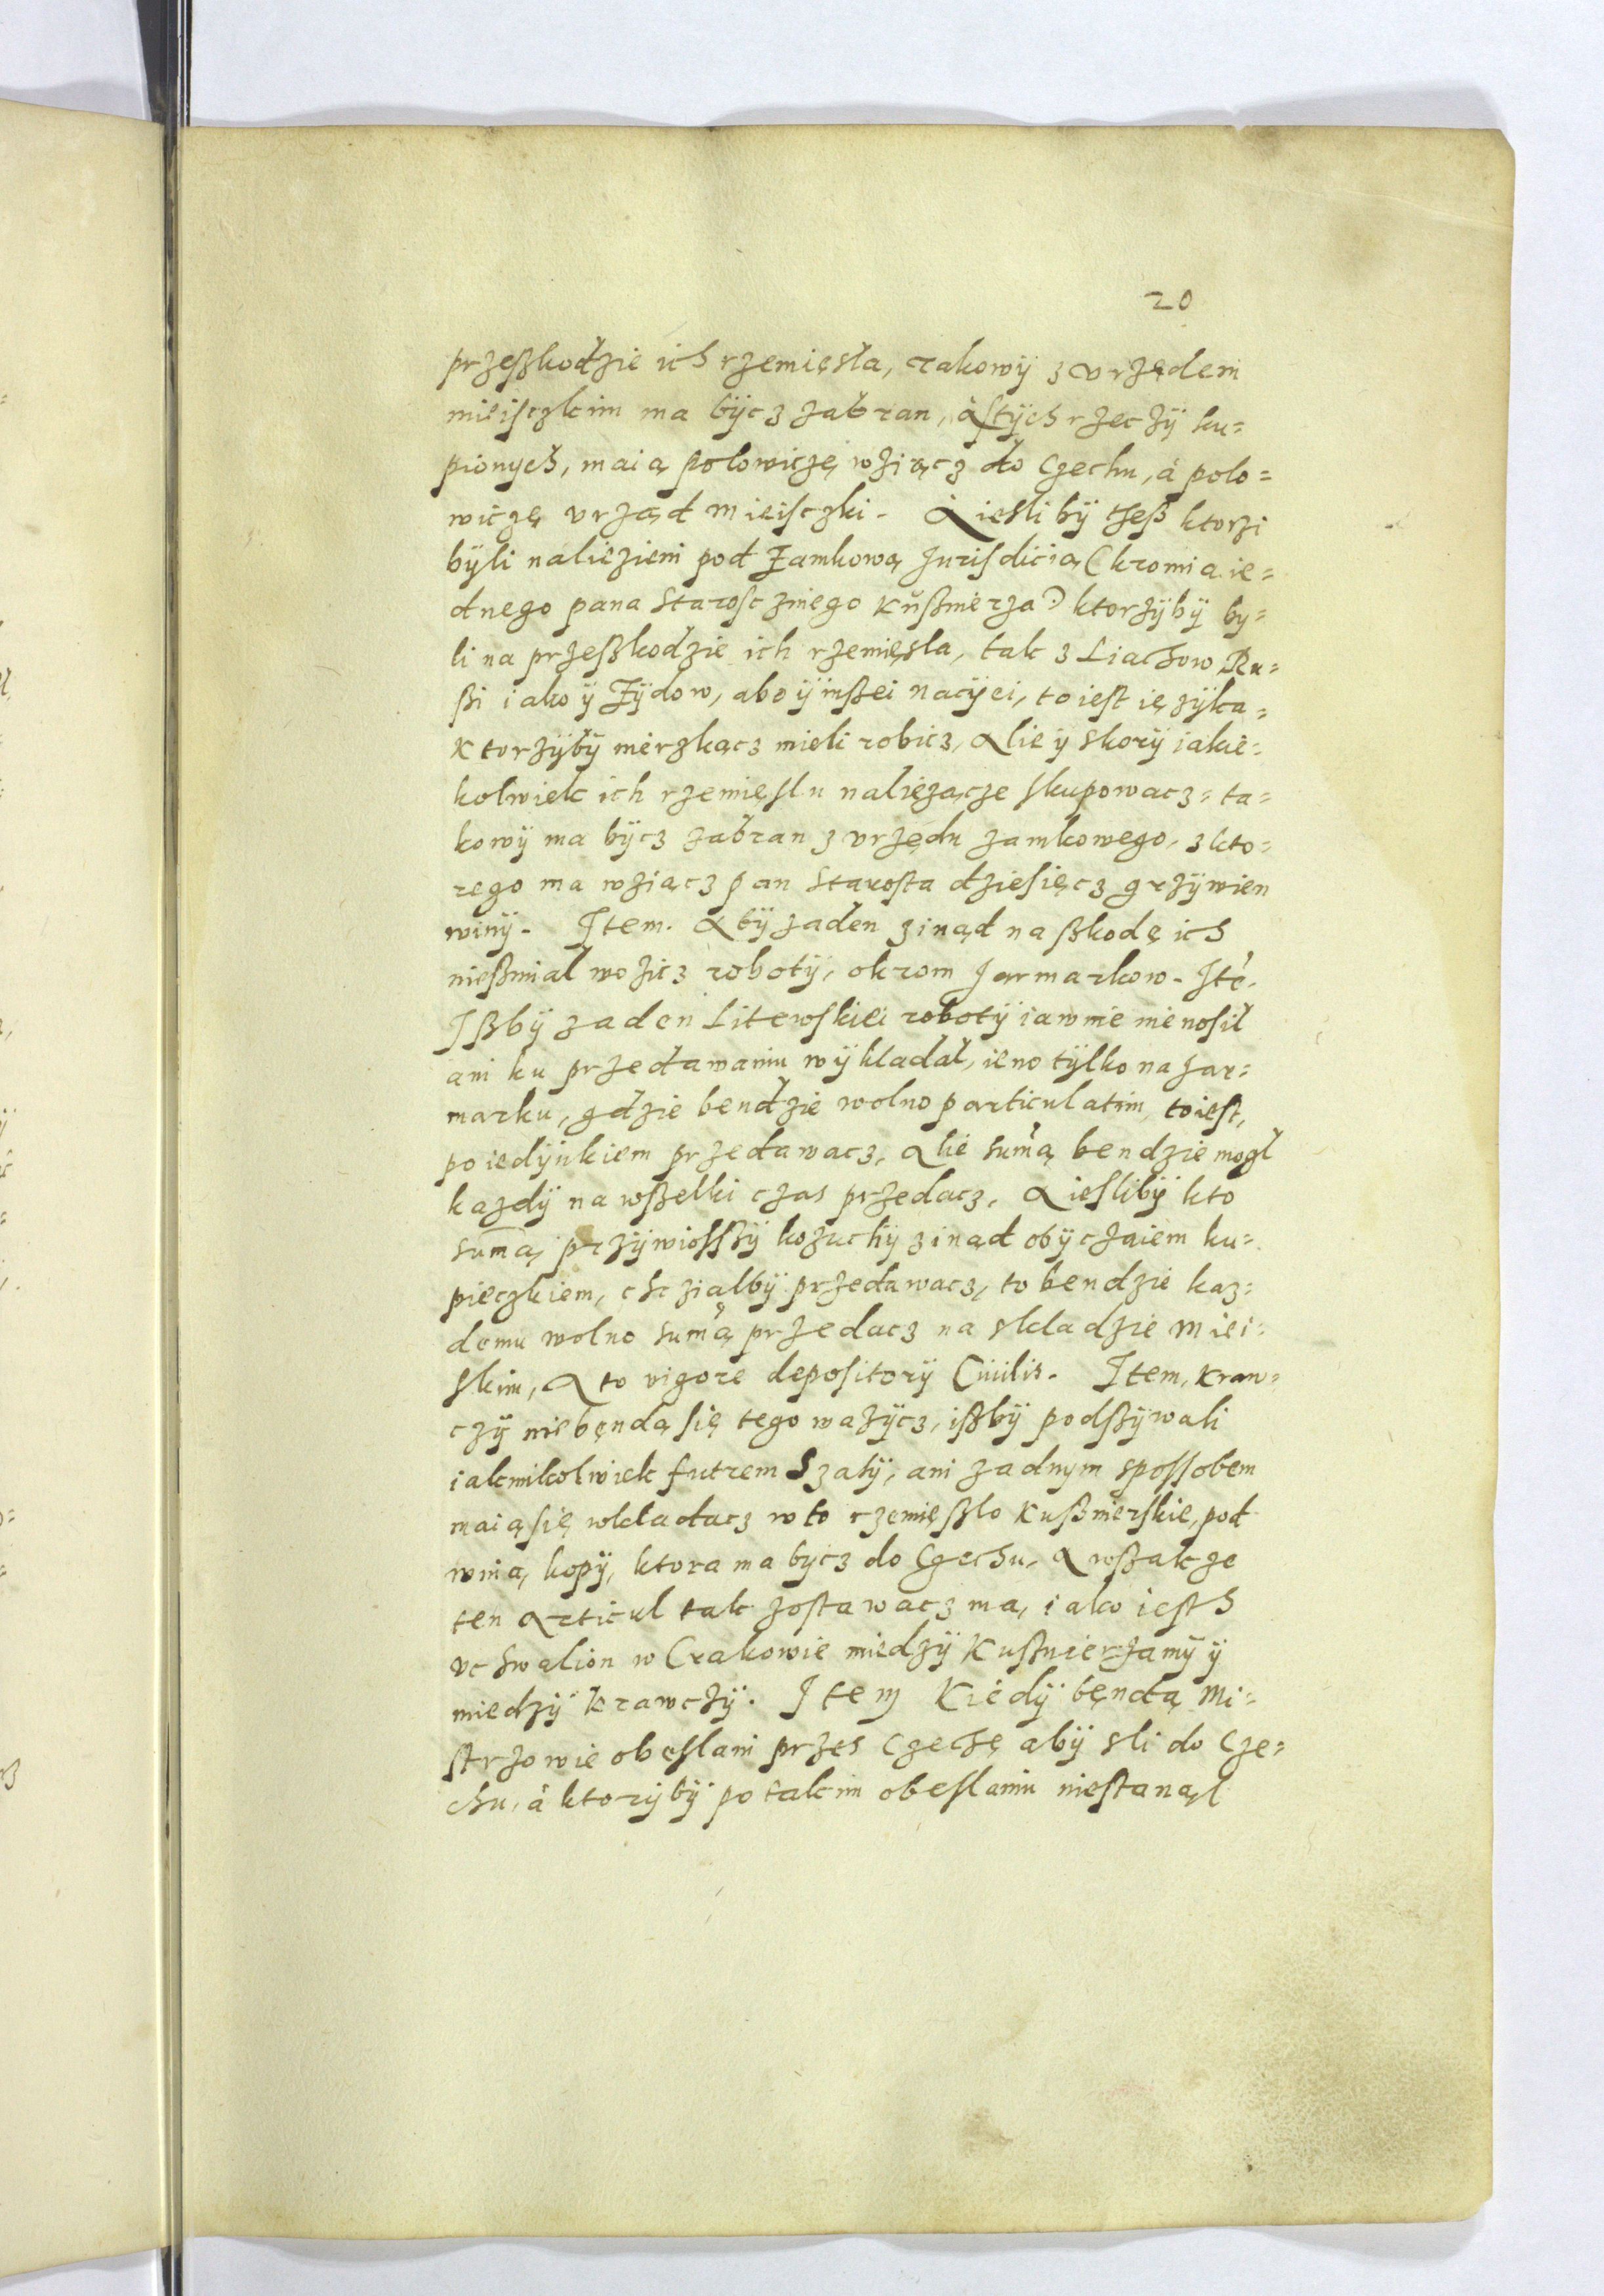 20
przeßkodzie ich rzemięsła, takowÿ z vrzędem
mieisczkim ma bÿcz zabran, a stÿch rzeczÿ ku=
pionych, maią polowiczę wziącz do Czechu, a polo=
wiczę vrząd mieisczki. A iesli bÿ theß ktorzi
bÿli nalieziem pod Zamkową Jurisdicią (kromia ie=
dnego pana Starosczinego Kußnierza) ktorzÿbÿ by=
li na przeßkodzie ich rzemięsla, tak z Liachow Ru=
ßi iako ÿ Zÿdow, abo ÿ inßei nacÿei, to iest ięzÿka=
Ktorzÿbÿ mierzkącz mieli robicz, Alie ÿ skorÿ iakie=
kolwiek ich rzemięslu naliezącze skupowacz= ta=
kowÿ ma bÿcz zabran z vrzędu zamkowego, z kto=
rego ma wziącz pan Starosta dziesięcz grzÿwien
winÿ. Item. Abÿ zaden zinąd na ßkodę ich
nießmial wozicz robotÿ, okrom Jarmarkow. Ite.
Ißbÿ zaden Litewskiei robotÿ iawnie nie nosil
ani ku przedawaniu wÿkladal, ieno tÿlko na Jar=
marku, gdzie bendzie wolno particulatim, to iest,
poiedÿnkiem przedawacz, Alie sumą bendzie mogl
kazdÿ na wßelki czas przedacz. A ieslibÿ kto
sumą przÿwiosßÿ kozuchÿ zinąd obÿczaiem ku=
pieczkiem, chczialbÿ przedawacz, to bendzie kaz=
demu wolno sumą przedacz na skladzie miei=
skim, A to vigore depositorÿ Ciuilis. Item, Kraw=
czÿ nie bęndą się tego wazÿcz, ißbÿ podßÿwali
iakmikolwiek futrem Szatÿ, ani zadnym spossobem
maią się wkladacz w to rzemięßlo Kußnierskie, pod
winą kopÿ, ktora ma bycz do Czechu. A wßakze
ten Articul tak zostawacz ma, iako iesth
vchwalion w Crakowie miedzÿ Kußnierzamÿ ÿ
miedzÿ krawczÿ. Item Kiedÿ bęndą Mi=
strzowie obeslani przes Czechę abÿ sli do Cze=
chu, a ktorÿbÿ po takim obeslaniu niestanął